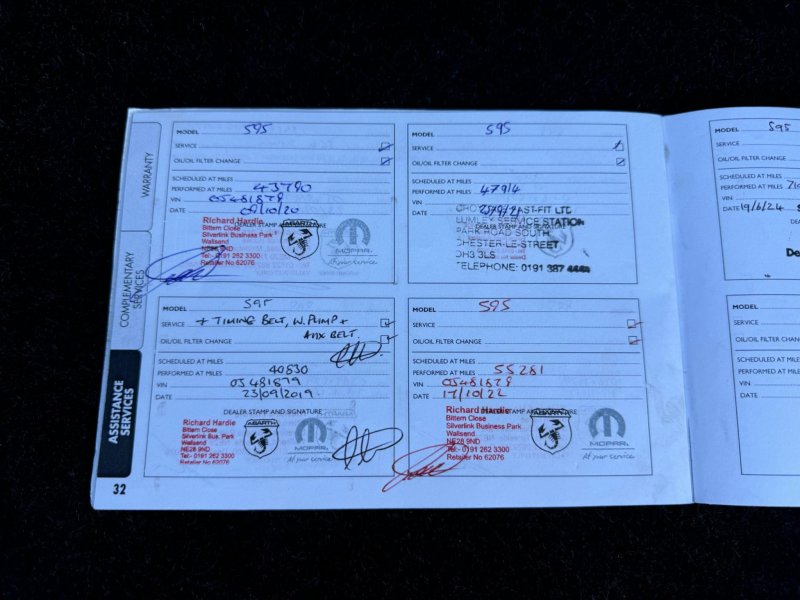 WARRANTY
COMPLEMENTARY
SERVICES
ASSISTANCE
SERVICES
MODEL 595
SERVICE
OIL/OIL FILTER CHANGE
SCHEDULED AT MILES
PERFORMED AT MILES 43790
VIN 0J481879
DATE 09/10/20
Richard Hardie
Bittern Close
Silverlink Business Park
Wallsend
NE28 9ND
Tel:- 0191 262 3300
Retailer No 62076
DEALER STAMP AND SIGNATURE
ABARTH
MOPAR
At your service
MODEL 595
SERVICE
OIL/OIL FILTER CHANGE
SCHEDULED AT MILES
PERFORMED AT MILES 47914
VIN
DATE
FAST-FIT LTD
LUMLEY SERVICE STATION
PARK ROAD SOUTH
CHESTER-LE-STREET
DH3 3LS
TELEPHONE: 0191 387
MODEL 595
SERVICE + TIMING BELT, W.PUMP +
AUX BELT.
OIL/OIL FILTER CHANGE
SCHEDULED AT MILES
PERFORMED AT MILES 40830
VIN 0J481879
DATE 23/09/2019
DEALER STAMP AND SIGNATURE
Richard Hardie
Bittern Close
Silverlink Bus. Park
Wallsend
NE28 9ND
Tel:- 0191 262 3300
Retailer No 62076
ABARTH
MOPAR
At your service
MODEL 595
SERVICE
OIL/OIL FILTER CHANGE
SCHEDULED AT MILES
PERFORMED AT MILES 55281
VIN 0J481879
DATE 17/10/22
Richard Hardie
Bittern Close
Silverlink Business Park
Wallsend
NE28 9ND
Tel:- 0191 262 3300
Retailer No 62076
ABARTH
MOPAR
At your service
32
MODEL 595
SERVICE
OIL/OIL FILTER CHANGE
SCHEDULED AT MILES
PERFORMED AT MILES
VIN
DATE 19/6/24
MODEL
SERVICE
OIL/OIL FILTER
SCHEDULED AT
PERFORMED AT
VIN
DATE